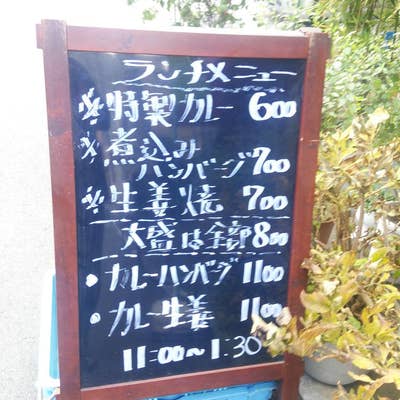 ランチメニュー
※特製カレー 600
※煮込み
ハンバーグ 700
※生姜焼 700
大盛は全部 800
・カレーハンバーグ 1100
・カレー生姜 1100
11:00~1:30